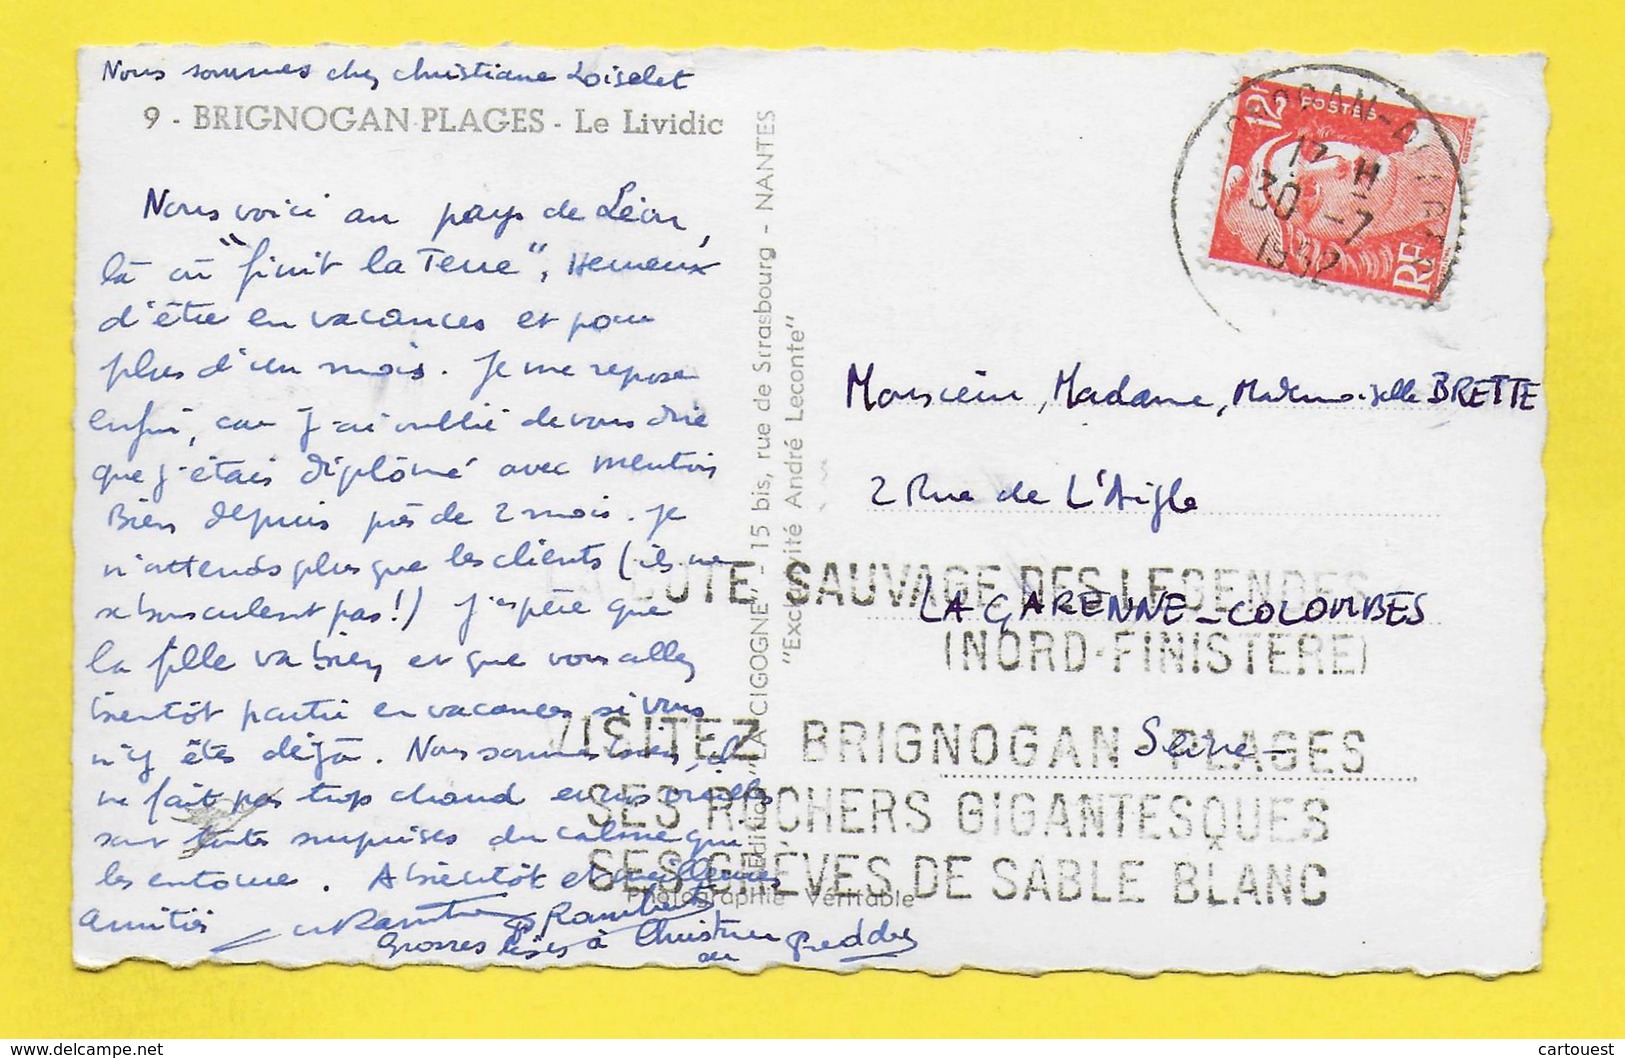 Nous sommes chez Christiane Loiselet
9 - BRIGNOGAN-PLAGES - Le Lividic
Nous voici au pays de Léon,
là où "finit la Terre", Heureux
d'être en vacances et pour
plus d'un mois. Je me repose
enfin, car j'ai oublié de vous dire
que j'étais diplômé avec mention
Bien depuis près de 2 mois. Je
n'attends plus que les clients (ils ne
se bousculent pas!) J'espère que
la fille va bien et que vous allez
bientôt partir en vacances si vous
n'y êtes déjà. Nous sommes bien, il
ne fait pas trop chaud et nos oreilles
sont toutes surprises du calme qui
les entoure. A bientôt et meilleures
amitiés
Grosses bises à Christian
au
Editions "LA CIGOGNE" - 15 bis, rue de Strasbourg - NANTES
"Exclusivité André Leconte"
Photographie Véritable
12F
POSTES
RF
17 H
30 -7
1952
Monsieur, Madame, Mademoiselle BRETTE
2 Rue de L'Aigle
LA GARENNE-COLOMBES
Seine-
COTE SAUVAGE DES LEGENDES
(NORD-FINISTERE)
VISITEZ BRIGNOGAN PLAGES
SES ROCHERS GIGANTESQUES
SES GRÈVES DE SABLE BLANC
cartouest
© www.delcampe.net